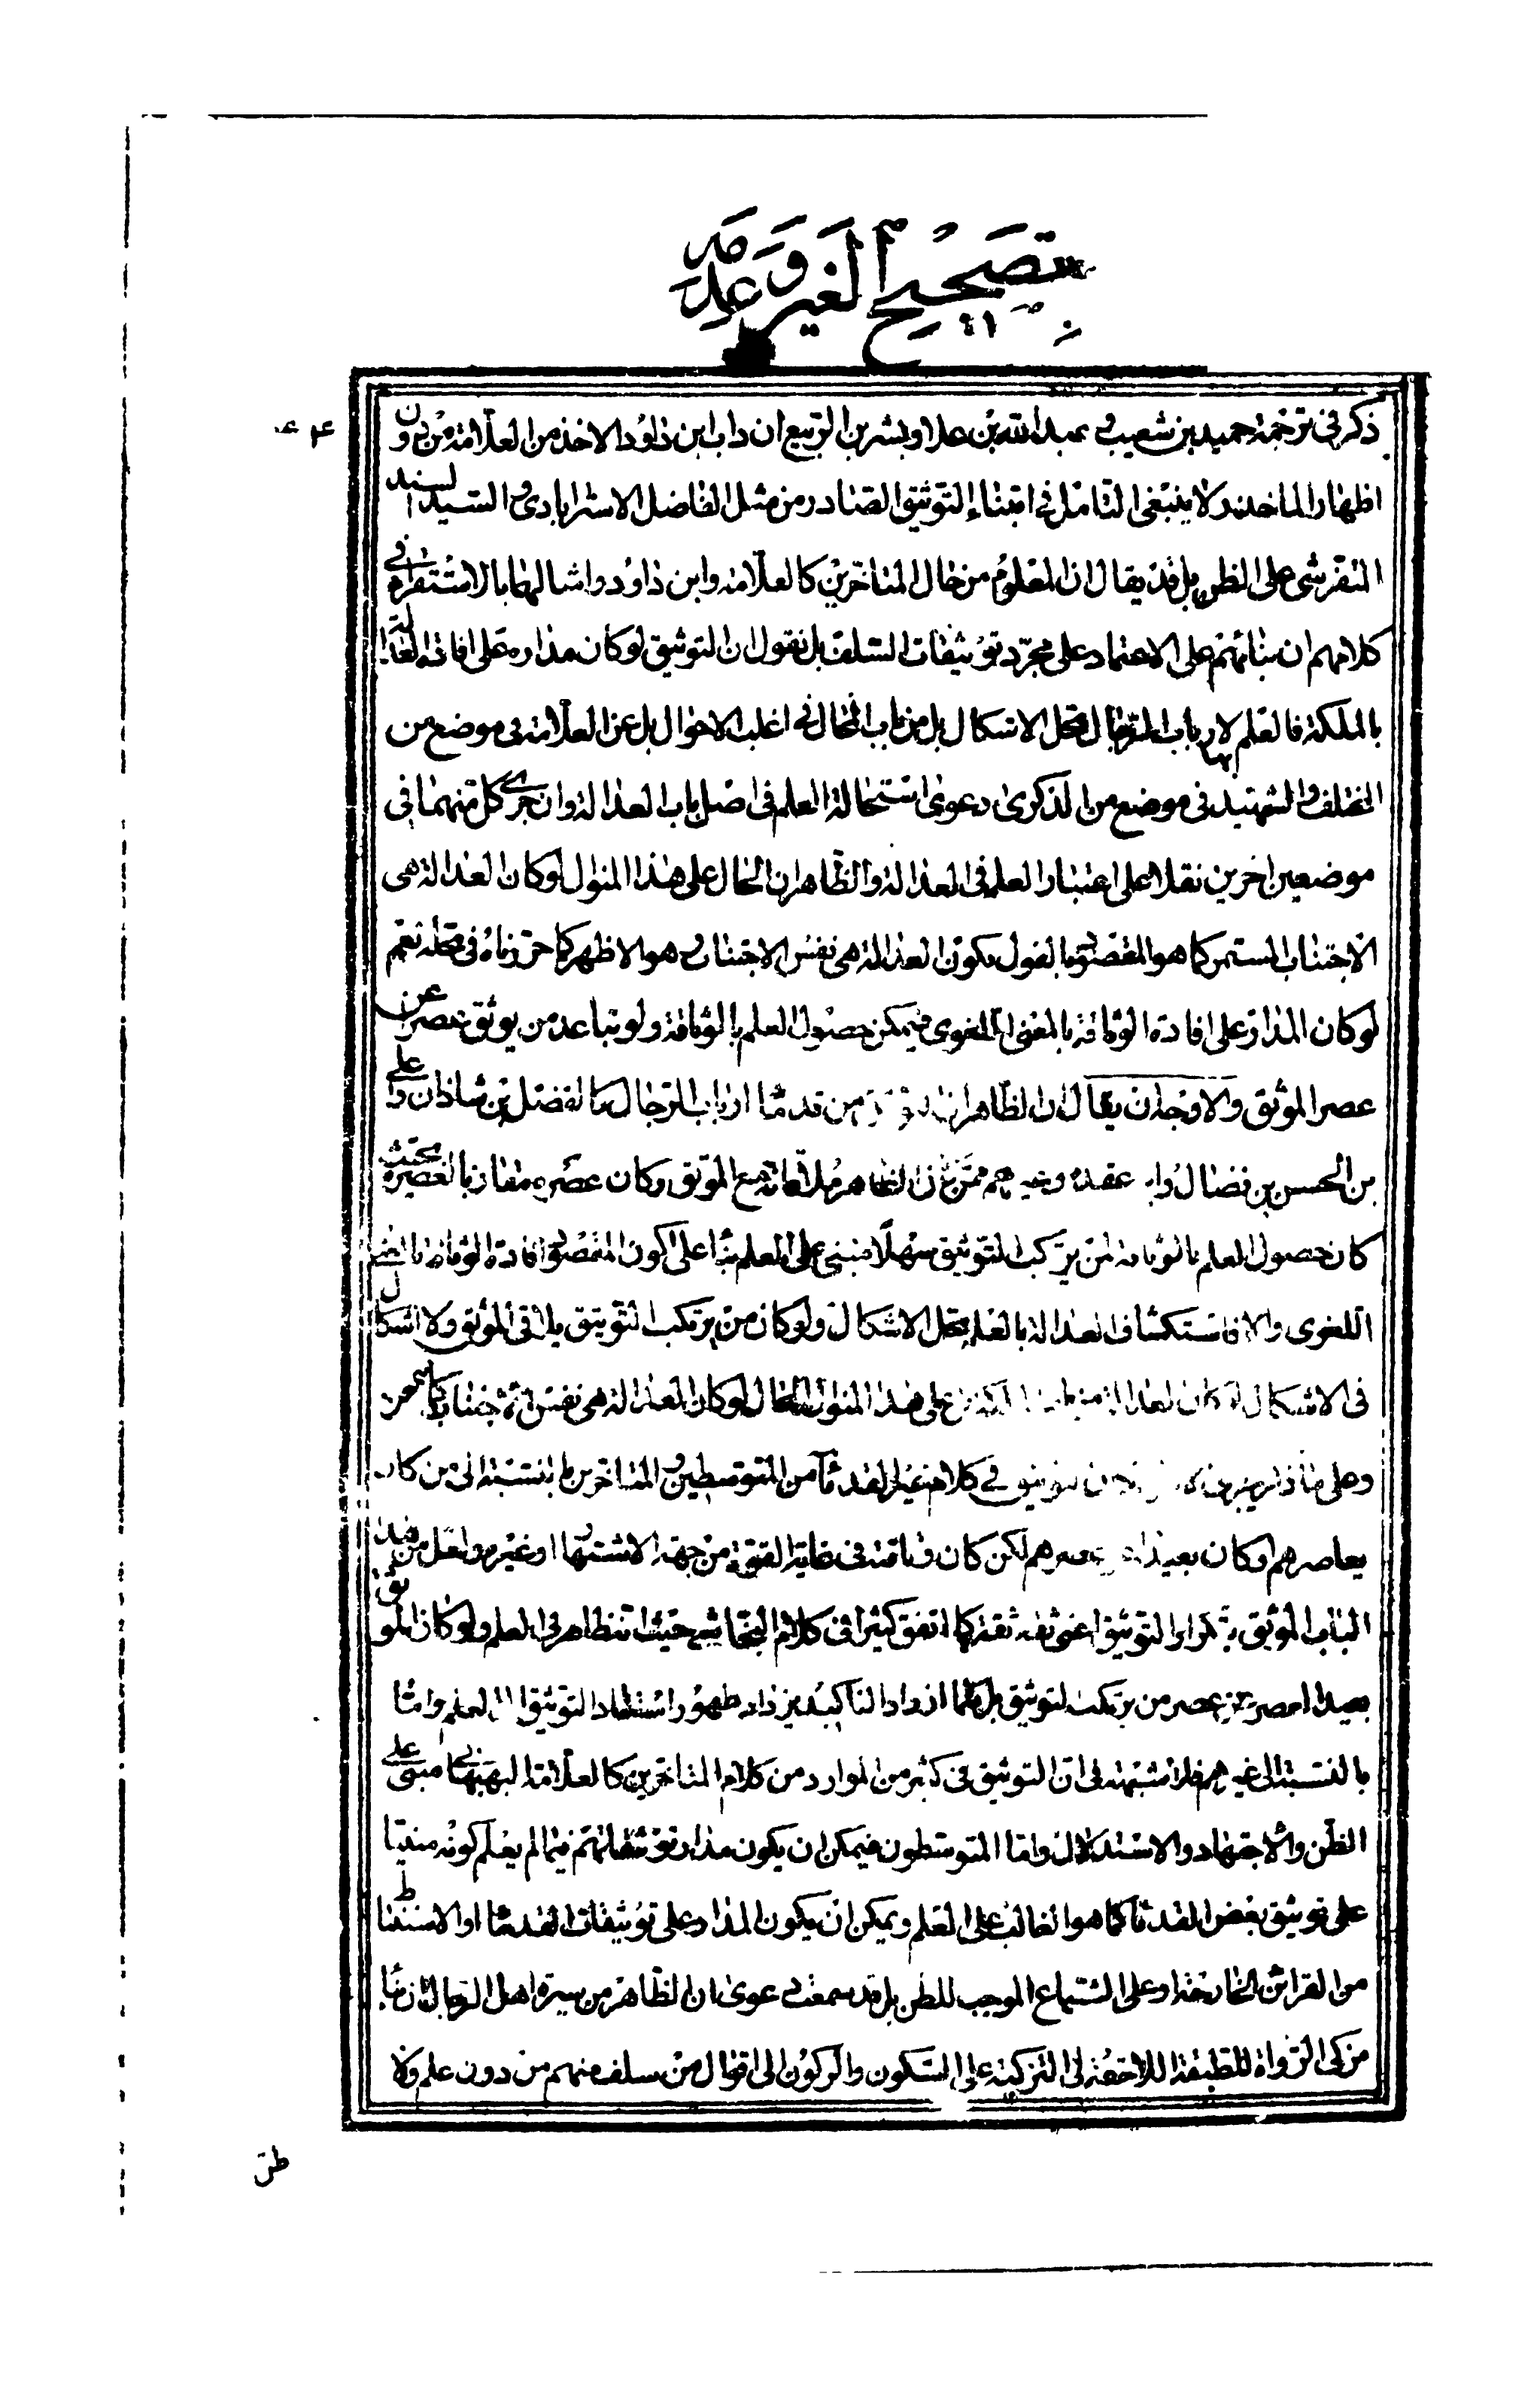 تصحيح الغير وعدمه
ذكر في ترجمة حميد بن شعيب و عبد الله بن علا و بشر بن الربيع ان داب ابن داود الاخذ من العلامة من دون
اظهار الماخذ لا ينبغي التامل في ابتناء التوثيق الصادر من مثل الفاضل الاسترابادي و السيد السند
التفرشي على الظن بل قد يقال ان المعلوم من حال المتاخرين كالعلامة وابن داود وامثالهما بالاستقراء في
كلامهم ان بنائهم على الاعتماد على مجرد توثيقات السلف بل نقول ان التوثيق لو كان مداره على افادة العدالة
بالملكة فالعلم لارباب الرجال بها محل الاشكال بل من باب المحال في اغلب الاحوال بل عن العلامة في موضع من
المختلف والشهيد في موضع من الذكرى دعوى استحالة العلم في اصل باب العدالة وان جرى كل منهما في
موضعين اخرين نقلا على اعتبار العلم في العدالة والظاهر ان الحال على هذا المنوال لو كان العدالة هي
الاجتناب المستمر كما هو المقصود بالقول بكون العدالة هي نفس الاجتناب و هو الاظهر كما حررناه في محله نعم
لو كان المدار على افادة الوثاقة بالمعنى اللغوي فيمكن حصول العلم بالوثاقة ولو تباعد من يوثق عصره عن
عصر الموثق والاوجه ان يقال ان الظاهر ان من قدماء ارباب الرجال كالفضل بن شاذان وعلي
بن الحسن بن فضال وابن عقدة وغيرهم ممن كان الظاهر ملاقاته مع الموثق وكان عصره مقارنا لعصره بحيث
كان حصول العلم بالوثاقة لمن يرتكب التوثيق سهلا مبني على العلم بناء على كون المقصود افادة الوثاقة بالمعنى
اللغوي والا فاستكشاف العدالة بالعلم محل الاشكال ولو كان من يرتكب التوثيق يلاقي الموثق ولا اشكال
في الاشكال لو كان العدالة على هذا المنوال الحال لو كان العدالة هي نفس الاجتناب كما سمعت
وعلى ما ذكر في كلام غير القدماء من المتوسطين والمتاخرين بالنسبة الى من كان
يعاصرهم او كان بعيدا عن عصرهم لكن كان وثاقته في غاية القوة من جهة الاشتهار او غيره ولعل من هذا
الباب الموثق بتكرار التوثيق اعني ثقة ثقة كما اتفق كثيرا في كلام النجاشي حيث انه ظاهر في العلم ولو كان الموثق
بعيد العصر عن عصر من يرتكب التوثيق بل كلما ازداد التاكيد يزداد ظهور استناد التوثيق الى العلم واما
بالنسبة الى غيرهم فلا شبهة في ان التوثيق في كثير من الموارد من كلام المتاخرين كالعلامة البهبهاني مبني على
الظن والاجتهاد والاستدلال واما المتوسطون فيمكن ان يكون مدار توثيقاتهم فيما لم يعلم كونه مبنيا
على توثيق بعض القدماء كما هو الغالب على العلم ويمكن ان يكون المدار على توثيقات القدماء او الاستنباط
من القرائن الخارجة او على السماع الموجب للظن بل قد سمعت دعوى ان الظاهر من سيرة اهل الرجال ان بناء
مزكى الرواة للطبقة اللاحقة في التزكية على السكون والركون الى اقوال من سلف منهم من دون علم ولا